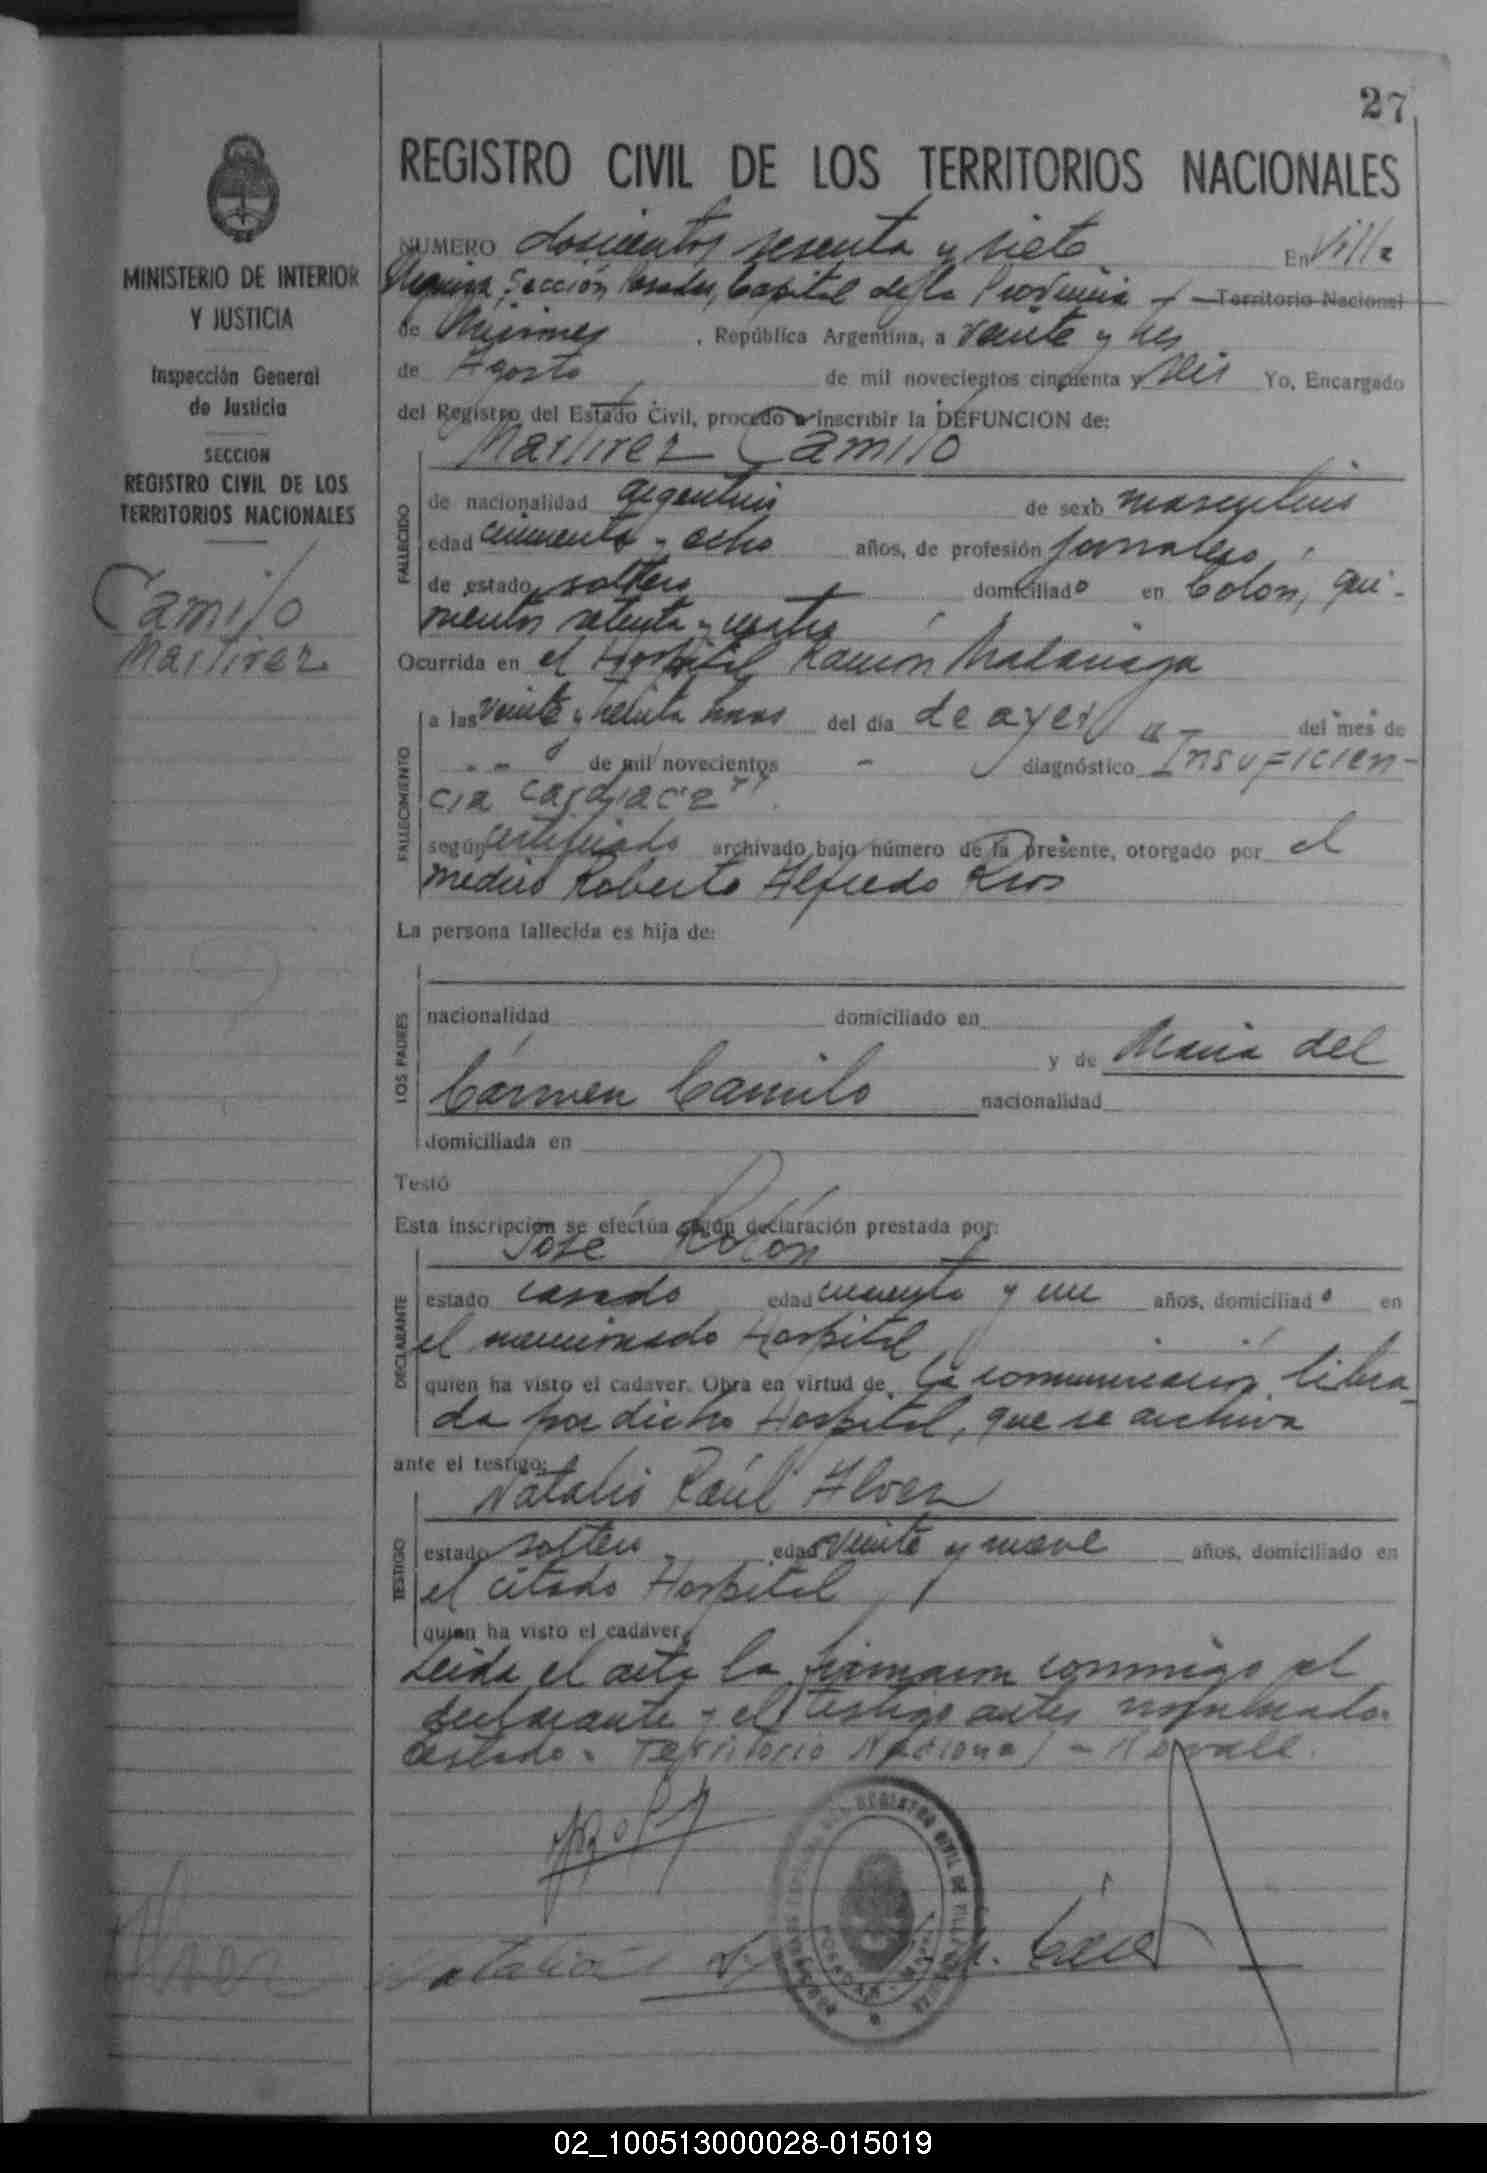 27
REGISTRO CIVIL DE LOS TERRITORIOS NACIONALES
MINISTERIO DE INTERIOR
Y JUSTICIA
Inspección General
de Justicia
SECCION
REGISTRO CIVIL DE LOS
TERRITORIOS NACIONALES
Camilo
Martirez
NUMERO dosicentos sesenta y siete En Villa
Sección Posadas, Capital de la Provincia Territorio Nacional
de Misiones, República Argentina, a veinte y tres
de Agosto de mil novecientos cincuenta y seis Yo, Encargado
del Registro del Estado Civil, procedo a inscribir la DEFUNCION de:
Martirez Camilo
FALLECIDO
de nacionalidad argentina de sexo masculino
edad cincuenta y ocho años, de profesión jornalero
de estado soltero domiciliado en Colon, qui-
nientos setenta y cuatro
Ocurrida en el Hospital Ramón Madariaga
FALLECIMIENTO
a las veinte y treinta horas del día de ayer del mes de
de mil novecientos - diagnóstico "Insuficien-
cia cardiaca"
según certificado archivado bajo número de la presente, otorgado por el
medico Roberto Alfredo Rios
La persona fallecida es hija de:
LOS PADRES
nacionalidad domiciliado en
y de Maria del
Cármen Camilo nacionalidad
domiciliada en
Testó
Esta inscripción se efectúa según declaración prestada por:
José Rolón
DECLARANTE
estado casado edad cincuenta y un años, domiciliado en
el mencionado Hospital
quien ha visto el cadaver. Obra en virtud de la comunicación libra-
da por dicho Hospital, que se archiva
ante el testigo:
Natalio Raúl Alvez
TESTIGO
estado soltero edad veinte y nueve años, domiciliado en
el citado Hospital
quien ha visto el cadáver.
Leida el acta la firmaron conmigo el
declarante y el testigo antes nombrado.
Testado: Territorio Nacional - No vale.
REGISTRO CIVIL DE VILLA
02_100513000028-015019